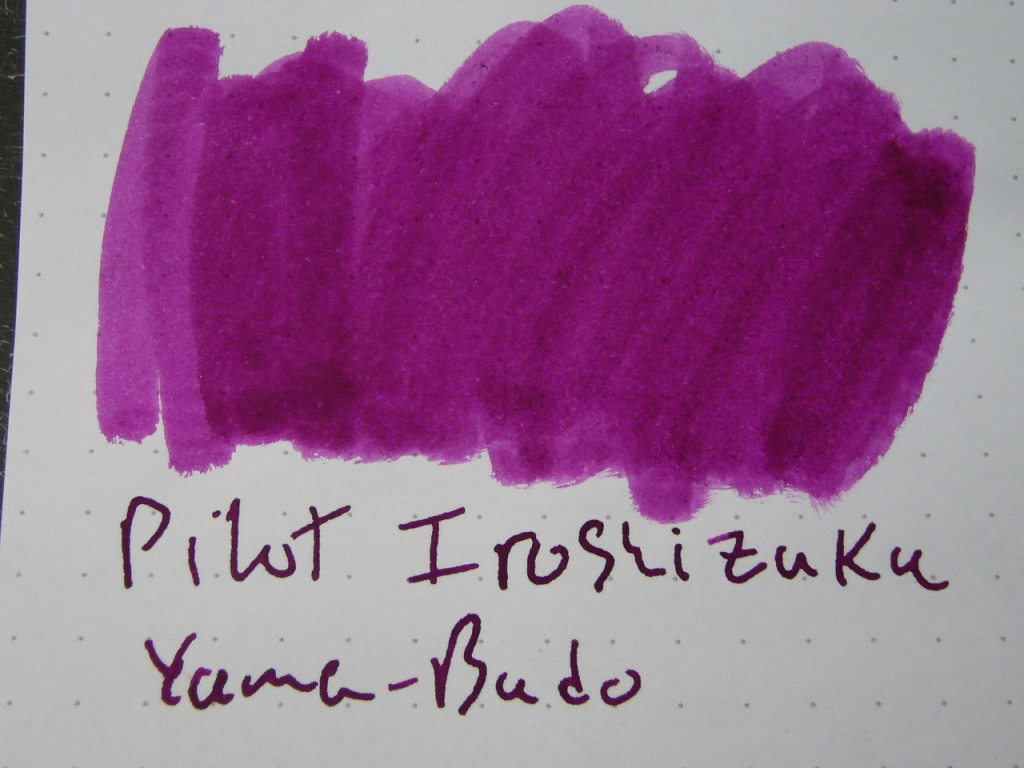 Pilot Iroshizuku
Yama-Budo